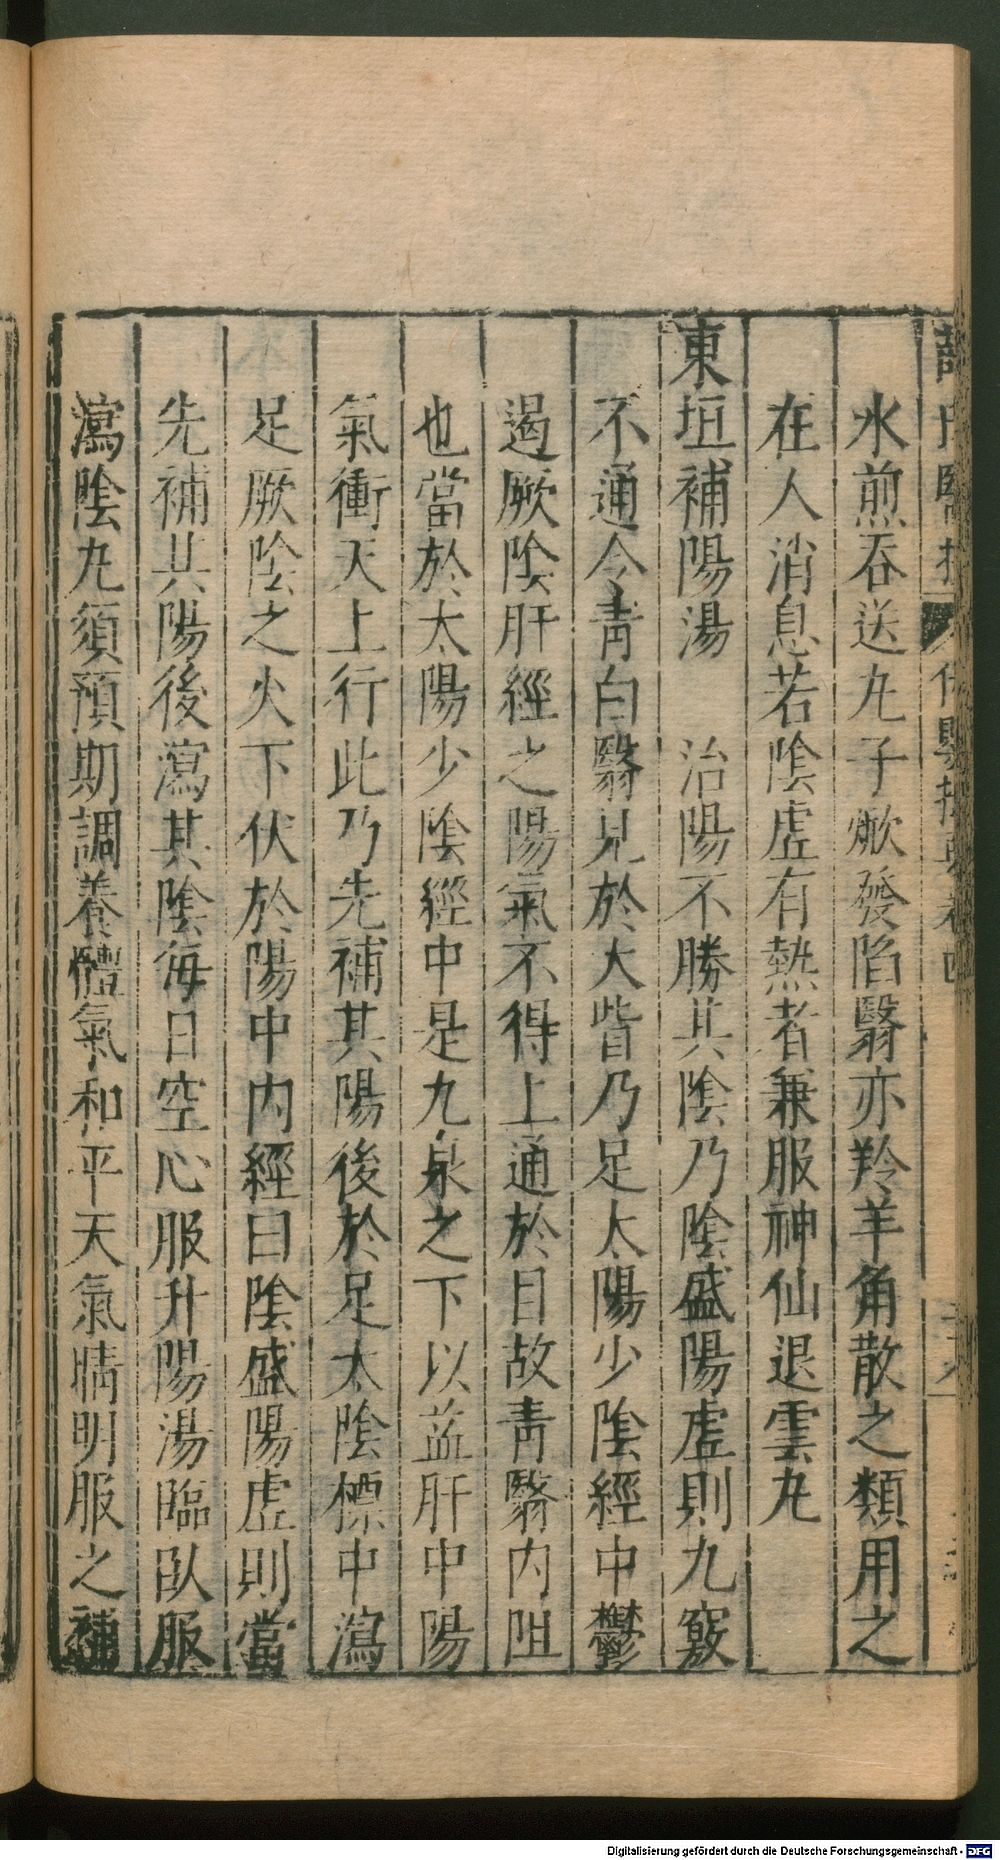 水煎吞送丸子焮發陷翳亦羚羊角散之類用之
在人消息若陰虛有熱者兼服神仙退雲丸
東垣補陽湯　治陽不勝其陰乃陰盛陽虛則九竅
不通今青白翳見於大眥乃足太陽少陰經中鬱
遏厥陰肝經之陽氣不得上通於目故青翳內阻
也當於太陽少陰經中是九泉之下以益肝中陽
氣衝天上行此乃先補其陽後於足太陰標中瀉
足厥陰之火下伏於陽中內經曰陰盛陽虛則當
先補其陽後瀉其陰每日空心服升陽湯臨臥服
瀉陰丸須預期調養體氣和平天氣晴明服之補
Digitalisierung gefördert durch die Deutsche Forschungsgemeinschaft - DFG